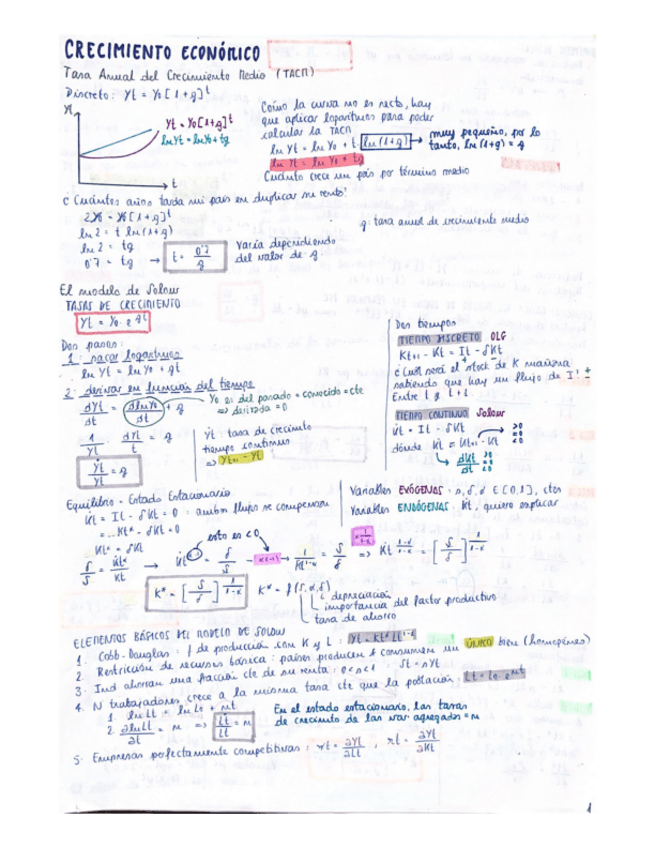 CRECIMIENTO ECONÓMICO
Tasa Anual del Crecimiento Medio (TACM)
Discreto: Yt = Y0[1+g]^t
Yt
Yt = Y0[1+g]^t
ln Yt = ln Y0 + tg
t
Como la curva no es recta, hay
que aplicar logaritmos para poder
calcular la TACM
ln Yt = ln Y0 + t ln(1+g) → muy pequeño, por lo
tanto, ln(1+g) = g
ln Yt = ln Y0 + tg
Cuánto crece un país por término medio
¿Cuántos años tarda mi país en duplicar su renta?
2Y0 = Y0[1+g]^t
g: tasa anual de crecimiento medio
ln 2 = t ln(1+g)
ln 2 = tg
0'7 = tg → t = 0'7/g
Varía dependiendo
del valor de g
El modelo de Solow
TASAS DE CRECIMIENTO
Yt = Y0 · e^gt
Dos pasos:
1. sacar logaritmos
ln Yt = ln Y0 + gt
2. derivar en función del tiempo
dYt/dt = dlnY0/dt + g
Y0 es del pasado = conocido = cte
⇒ derivada = 0
1/Y dYt/t = g
Ẏt/Yt = g
Ẏt tasa de crecimto
tiempo continuo
⇒ Yt+1 - Yt
Dos tiempos
TIEMPO DISCRETO OLG
Kt+1 - Kt = It - δKt
¿Cuál será el stock de K mañana
sabiendo que hay un flujo de I?
Entre t y t+1
TIEMPO CONTINUO Solow
K̇t = It - δKt
donde K̇t = Kt+1 - Kt >0 =0 <0
dKt/dt >0 =0 <0
Equilibrio = Estado Estacionario
K̇t = It - δKt = 0 : ambos flujos se compensan
Kt^α = δKt
esto es <0
K* = [S/δ]^1/1-α
K* = f(S, α, δ)
depreciación
importancia del factor productivo
tasa de ahorro
Variables EXÓGENAS: s, δ, α ∈ [0,1], ctes
Variables ENDÓGENAS: Kt, quiero explicar
ELEMENTOS BÁSICOS DEL MODELO DE SOLOW
1. Cobb-Douglas: f de producción con K y L: Yt = Kt^α Lt^1-α
2. Restricción de recursos básica: países producen y consumen un único bien (homogéneo)
3. Ind ahorran una fracción cte de su renta: 0<s<1 : St = sYt
4. N trabajadores crece a la misma tasa cte que la población: Lt = L0 · e^nt
1. ln Lt = ln L0 + nt
2. ∂lnLt/∂t = n ⇒ L̇t/Lt = n
En el estado estacionario, las tasas
de crecimto de las var agregadas = n
5. Empresas perfectamente competitivas: wt = ∂Yt/∂Lt , rt = ∂Yt/∂Kt
1